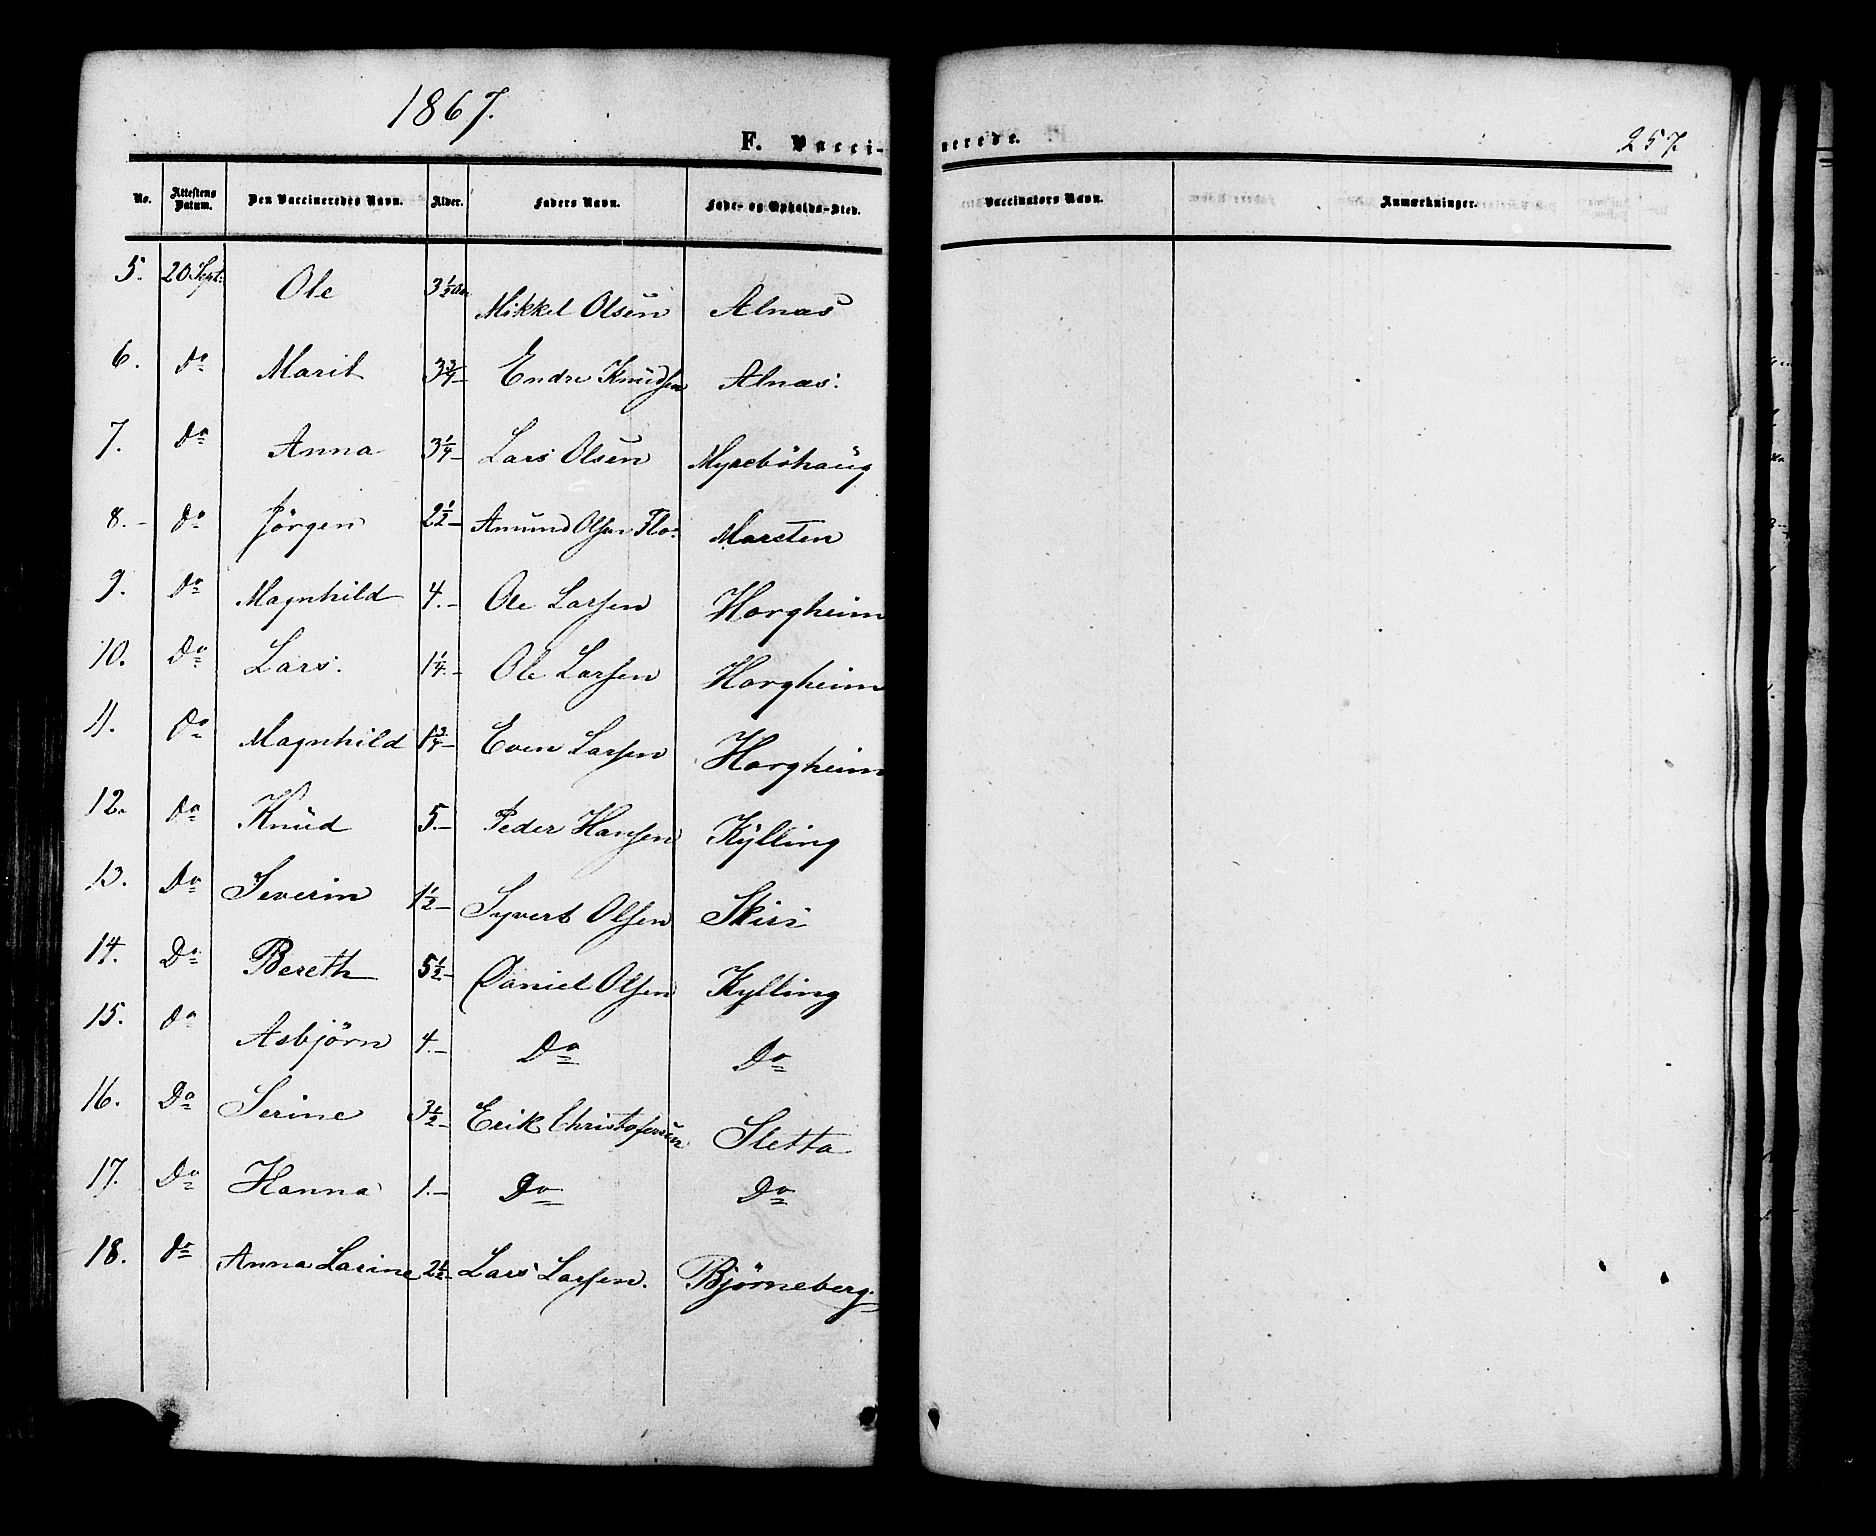 1867.
F. Vaccinerede.
257.
No. Attestens Datum. Den Vaccineredes Navn. Alder. Faders Navn. Føde- og Opholds-Sted. Vaccinators Navn. Anmærkninger.
5. 20 Sept. Ole 3 1/2 Aar Mikkel Olsen Alnæs
6. Do Marit 3 3/4 – Endre Knudsen Alnæs.
7. Do Anna 3 1/4 – Lars Olsen Myreböhaug
8. – Do Jörgen 2 1/2 – Amund Olsen Flo. Marsten
9. Do Magnhild 4. – Ole Larsen Horgheim
10. Do Lars. 1 1/4. – Ole Larsen Horgheim
11. Do Magnhild 1 3/4 – Even Larsen Horgheim
12. Do Knud 5. – Peder Hansen Kylling
13. Do Severin 1 1/2 – Syvert Olsen Skiri
14. Do Bereth 5 1/2 – Daniel Olsen Kylling
15. Do Asbjörn 4. – Do Do
16. Do Serine 3 1/2 – Erik Christofersen Sletta
17. Do Hanna 1. – Do Do
18. Do Anna Larine 2 1/2 – Lars Larsen. Bjørneberg.